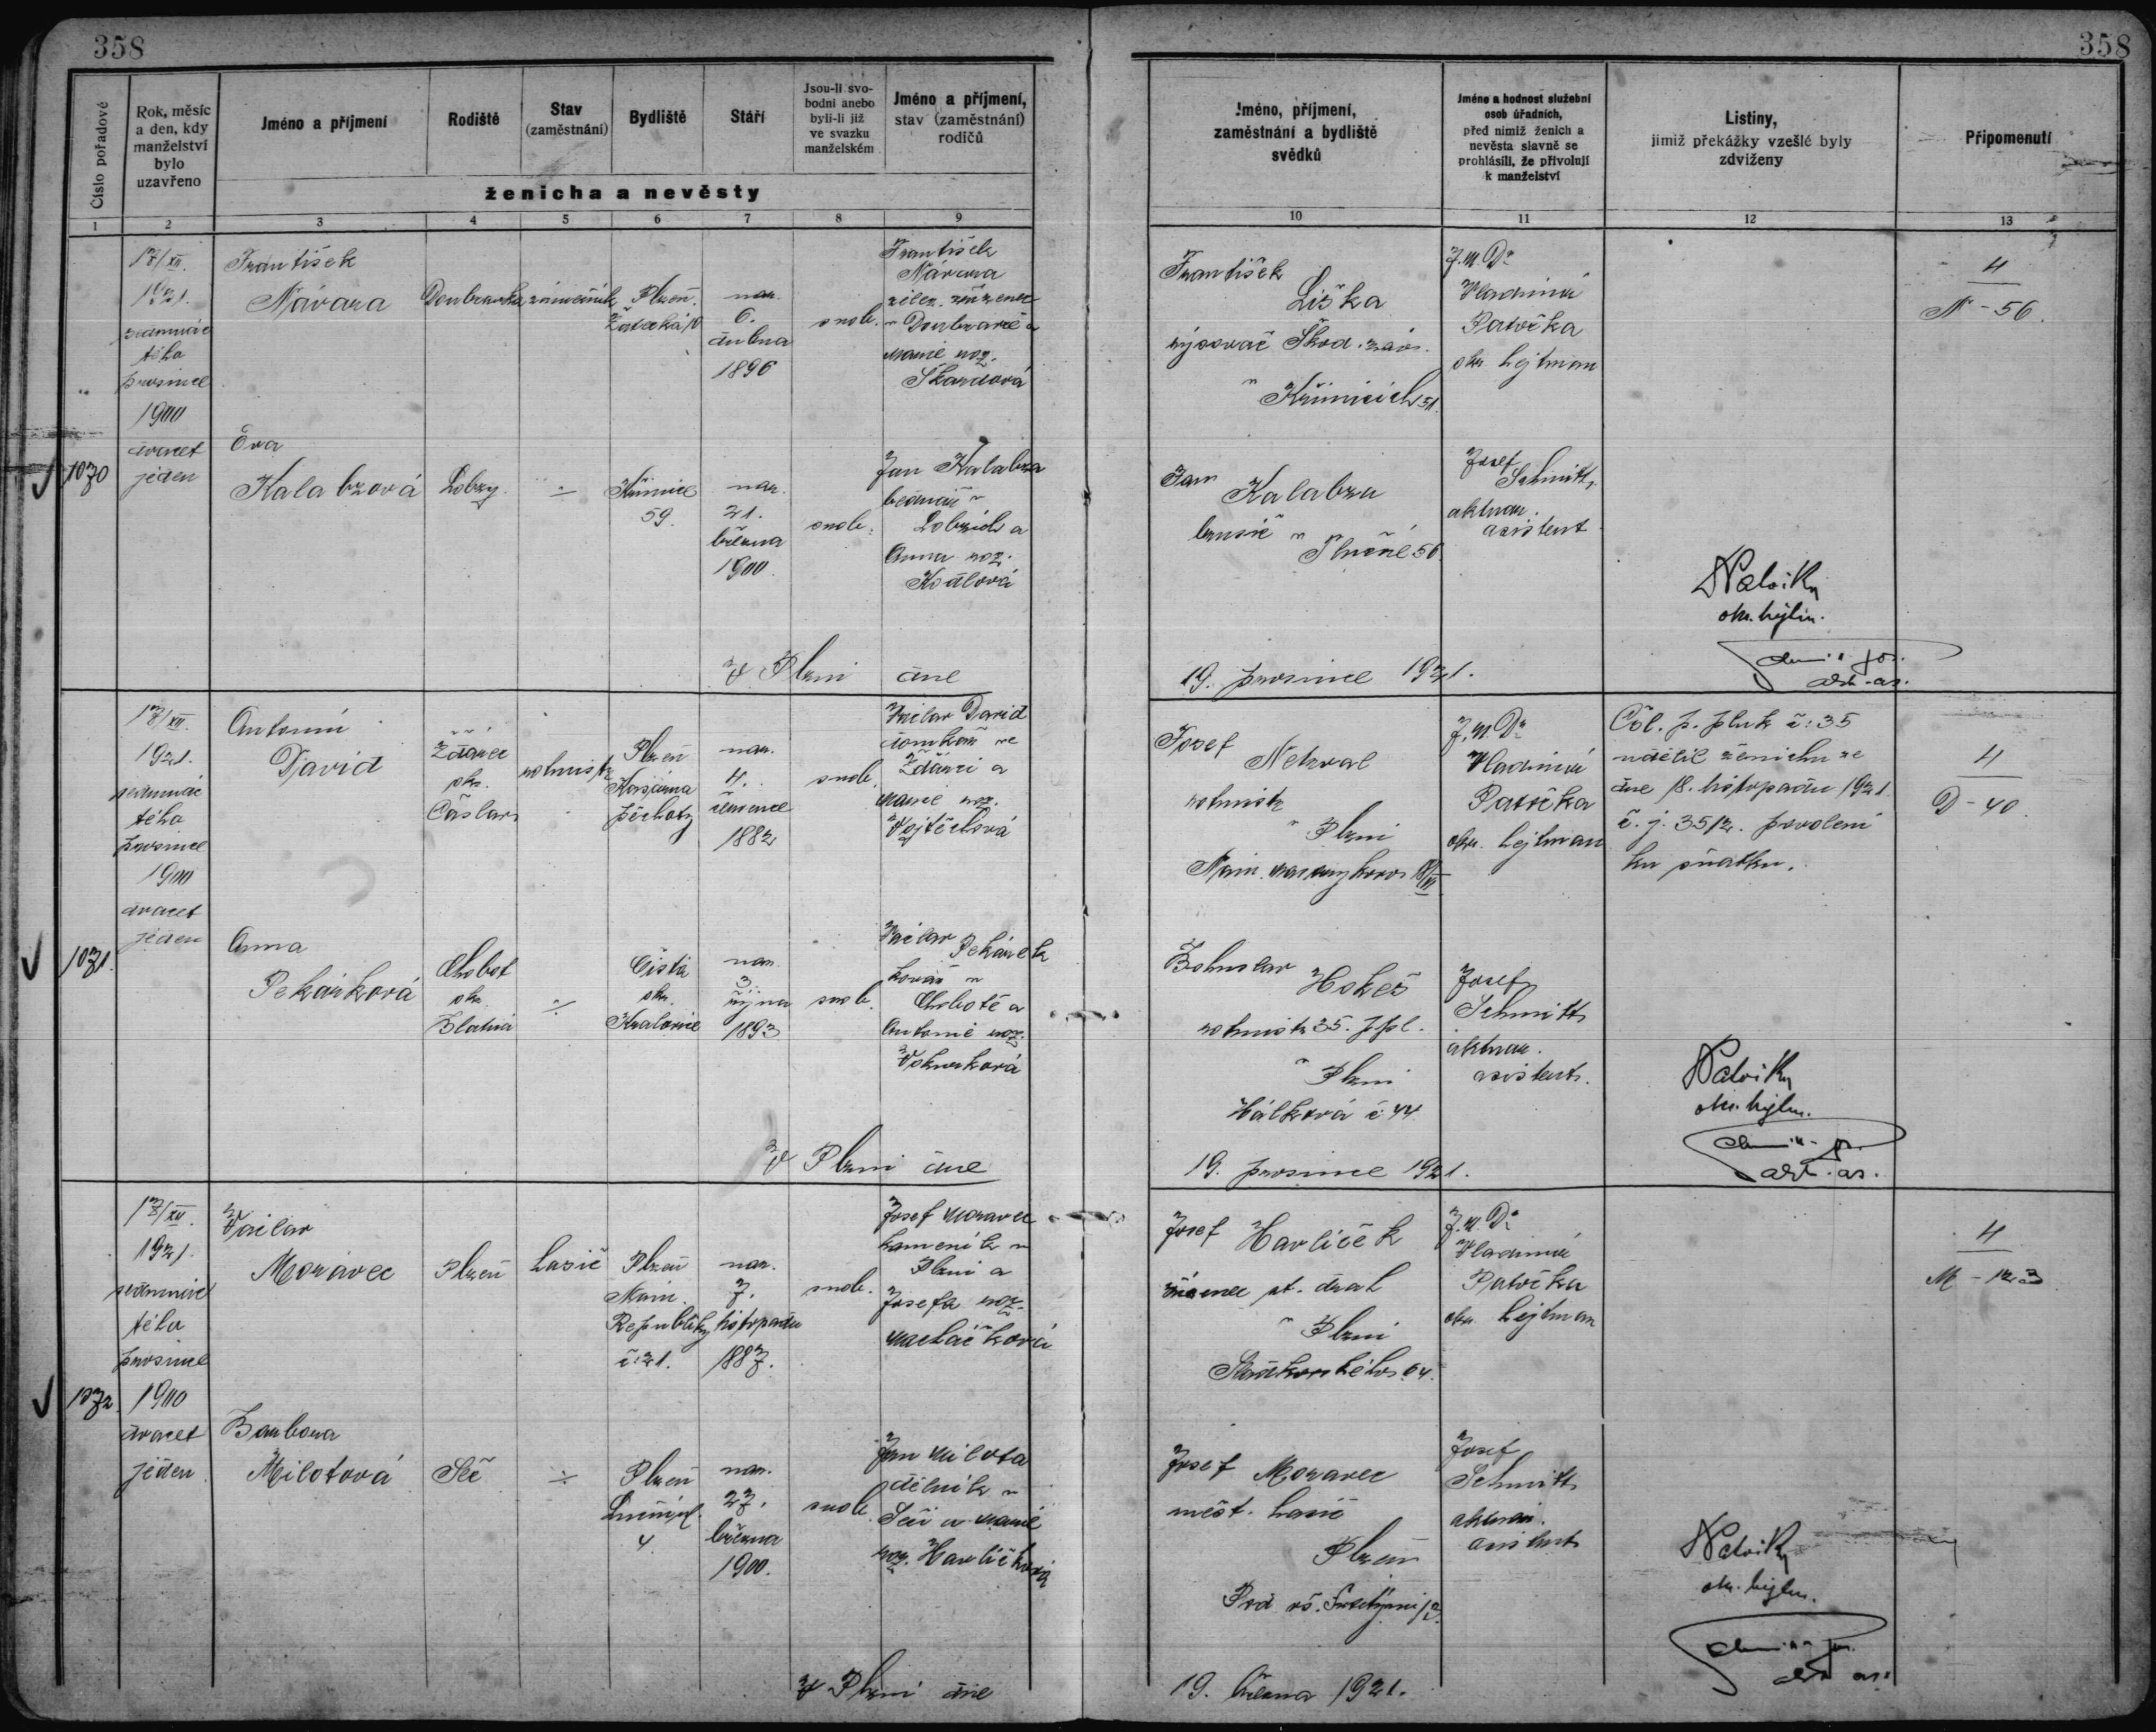 358
358
Číslo pořadové
Rok, měsíc
a den, kdy
manželství
bylo
uzavřeno
Jméno a příjmení
Rodiště
Stav
(zaměstnání)
Bydliště
Stáří
Jsou-li svo-
bodni anebo
byli-li již
ve svazku
manželském
Jméno a příjmení,
stav (zaměstnání)
rodičů
ženicha a nevěsty
Jméno, příjmení,
zaměstnání a bydliště
svědků
Jméno a hodnost služební
osob úřadních,
před nimiž ženich a
nevěsta slavně se
prohlásili, že přivolují
k manželství
Listiny,
jimiž překážky vzešlé byly
zdviženy
Připomenutí
1
2
3
4
5
6
7
8
9
10
11
12
13
1070
17/XII.
1921.
sedmnác
tého
prosince
1900
dvacet
jeden
František
Návara
Doubravka
zámečník
Plzeň.
Žatecká 10
nar.
6.
dubna
1896
svob.
František
Návara
želez. zřízenec
v Doubravce a
Marie roz.
Škardová
František
Liška
rýsovač Škod. záv.
v Křimicích 51.
J.U.Dr
Vladimír
Patočka
okr. hejtman
4
N - 56.
Eva
Kalabzová
Lobzy.
÷
Křimice
59.
nar.
21.
března
1900.
svob.
Jan Kalabza
bednář v
Lobzích a
Anna roz.
Jan
Kalabza
brusič v
56
Josef
Schmitt,
aktuar.
asistent
Patočka
okr. hejtm.
akt. as.
V Plzni dne
19. prosince 1921.
1071.
17/XII.
1921.
sedmnác
tého
prosince
1900
dvacet
jeden
Antonín
David
okr.
Čáslav
rotmistr
Plzeň
Kasárna
pěchoty
nar.
4.
července
1882
svob.
Václav David
domkář ve
a
Marie roz.
Vojtěchová
Josef
Nekval
rotmistr
v Plzni
J.U.Dr
Vladimír
Patočka
okr. hejtman
Čsl. p. pluk č: 35
udělil ženichu ze
dne 18. listopadu 1921
č. j. 35/2. povolení
ku sňatku.
4
D - 40.
Anna
Pekárková
Chobot
okr.
Blatná
÷
Čistá
okr.
Kralovice
nar.
3.
října
1893
svob.
Václav Pekárek
kovář v
Chobotě a
Antonie roz.
Bohuslav
Hokeš
rotmistr 35. p. pl.
v Plzni
Hálkova č. 44
Josef
Schmitt
aktuar.
asistent.
Patočka
okr. hejtm.
akt. as.
V Plzni dne
19. prosince 1921.
1072.
17/XII.
1921.
sedmnác
tého
prosince
1900
dvacet
jeden
Václav
Moravec
Plzeň
hasič
Plzeň
Nám.
Republiky
č: 21.
nar.
7.
listopadu
1887.
svob.
Josef Moravec
kameník v
Plzni a
Josefa roz.
Macháčková
Josef Havlíček
zřízenec st. drah
v Plzni
64.
J.U.Dr
Vladimír
Patočka
okr. hejtman
4
M - 123
Barbora
Milotová
Seč
÷
Plzeň
4
nar.
27.
března
1900.
svob.
Jan Milota
dělník v
Seči a Marie
roz. Havlíčková
Josef Moravec
měst. hasič
Plzeň
Josef
Schmitt
aktuar.
asistent
Patočka
okr. hejtm.
akt. as.
V Plzni dne
19. března 1921.